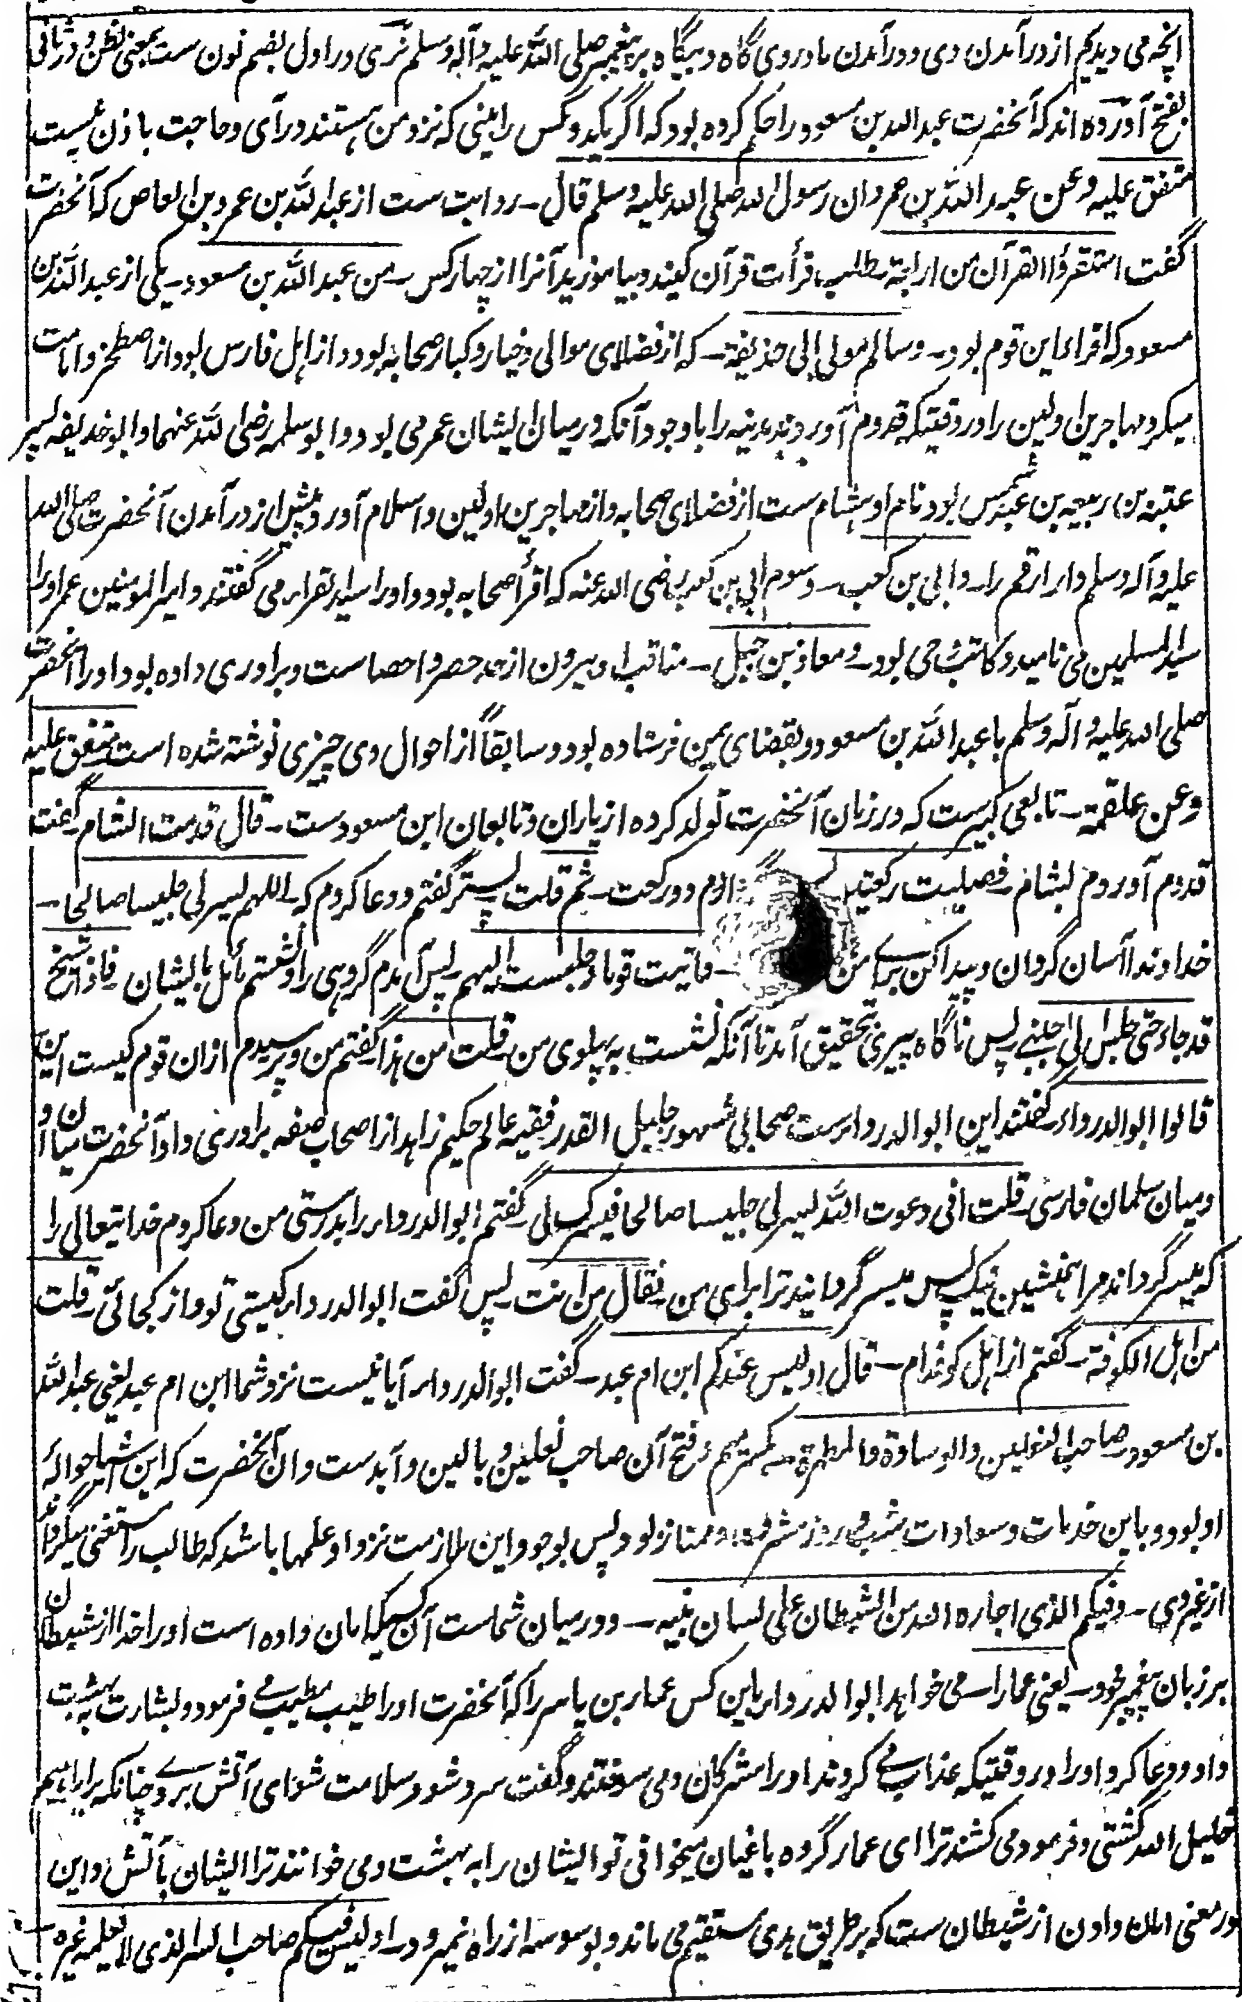 انچه می دیدیم از در آمدن وی و در آمدن مادر وی گاه و بیگاه بر پیغمبر صلی الله علیه و آله وسلم نری در اول بضم نون ست بمعنی نظن و در ثانی
بفتح آورده اند که آنحضرت عبد الله بن مسعود را حکم کرده بود که اگر یکد و کس را بینی که نزد من هستند در آی و حاجت باذن نیست
متفق علیه وعن عبد الله بن عمرو ان رسول الله صلی الله علیه وسلم قال ـ روایت ست از عبد الله بن عمرو بن العاص که آنحضرت
گفت استقرؤا القرآن من اربعة طلب قرأت قرآن کنید و بیاموزید آنرا از چهار کس ـ من عبد الله بن مسعود ـ یکی از عبد الله بن
مسعود که اقرای این قوم بود ـ وسالم مولی ابی حذیفة ـ که از فضلای موالی و خیار و کبار صحابه بود و از اهل فارس بود از اصطخر و امامت
میکرد مهاجرین اولین را در وقتیکه قدوم آوردند مدینه را با وجود آنکه درمیان ایشان عمر می بود و ابو سلمه رضی الله عنهما و ابو حذیفه پسر
عتبه بن ربیعه بن عبد شمس بود نام او هشام ست از فضلای صحابه و از مهاجرین اولین و اسلام آورد پیش از در آمدن آنحضرت صلی الله
علیه و آله وسلم دار ارقم را ـ وابی بن کعب ـ وسوم ابی بن کعب رضی الله عنه که اقرأ صحابه بود و او را سید القراء می گفتند و امیر المومنین عمر او را
سید المسلمین می نامید و کاتب وحی بود ـ ومعاذ بن جبل ـ مناقب او بیرون از حد حصر و احصا ست و برادری داده بود او را آنحضرت
صلی الله علیه و آله وسلم با عبد الله بن مسعود و بقضای یمن فرستاده بود و سابقاً از احوال وی چیزی نوشته شده است متفق علیه
وعن علقمة ـ تابعی کبیر ست که در زمان آنحضرت تولد کرده از یاران و تابعان ابن مسعود ست ـ قال قدمت الشام ـ گفت
قدوم آوردم بشام ـ فصلیت رکعتین دوم دو رکعت ـ ثم قلت پستر گفتم و دعا کردم که ـ اللهم یسر لی جلیسا صالحا ـ
خداوندا آسان گردان و پیدا کن برای من ـ فاتیت قوما فجلست الیهم ـ پس آمدم گروهی را و نشستم مائل بایشان ـ فاذا شیخ
قد جاء حتی جلس الی جنبی ـ پس ناگاه پیری بتحقیق آمد تا آنکه نشست به پهلوی من ـ قلت من هذا ـ گفتم من و پرسیدم ازان قوم کیست این
قالوا ابو الدرداء ـ گفتند این ابو الدرداء ست صحابی مشهور جلیل القدر فقیه عالم حکیم زاهد از اصحاب صفه برادری داد آنحضرت میان او
ومیان سلمان فارسی ـ قلت انی دعوت الله لیسر لی جلیسا صالحا فیسرک لی ـ گفتم ابو الدرداء را بدرستی من دعا کردم خدایتعالی را
که میسر گرداند مرا همنشین نیک پس میسر گردانید ترا برای من ـ فقال من انت ـ پس گفت ابو الدرداء کیستی تو و از کجائی ـ قلت
من اهل الکوفة ـ گفتم از اهل کوفه ام ـ قال اولیس عندکم ابن ام عبد ـ گفت ابو الدرداء آیا نیست نزد شما ابن ام عبد یعنی عبد الله
بن مسعود ـ صاحب النعلین والوسادة والمطهرة بکسر میم و فتح آن صاحب نعلین و بالین و آبدست دان آنحضرت که این اشیا حواله
او بود و باین خدمات و سعادات شب و روز مشرف و ممتاز بود پس بوجود این ملازمت نزد او علمها باشد که طالب را مستغنی میگرداند
از غیر وی ـ وفیکم الذی اجاره الله من الشیطان علی لسان نبیه ـ و در میان شماست آن کسیکه امان داده است او را خدا از شیطان
بر زبان پیغمبر خود ـ یعنی عمارا ـ می خواهد ابو الدرداء باین کس عمار بن یاسر را که آنحضرت او را طیب مطیب می فرمود و بشارت بهشت
داد و دعا کرد او را در وقتیکه عذاب می کردند او را مشرکان و می سوختند و گفت سرد شو و سلامت شو ای آتش بر وے چنانکه بر ابراهیم
خلیل الله گشتی و فرمود می کشند ترا ای عمار گروه باغیان میخوانی تو ایشان را به بهشت و می خوانند ترا ایشان بآتش و این
در معنی امان دادن از شیطان ست که بر طریق هدی مستقیم می ماند و بوسوسه از راه نمیرود ـ اولیس فیکم صاحب السر الذی لا یعلمه غیره ـ